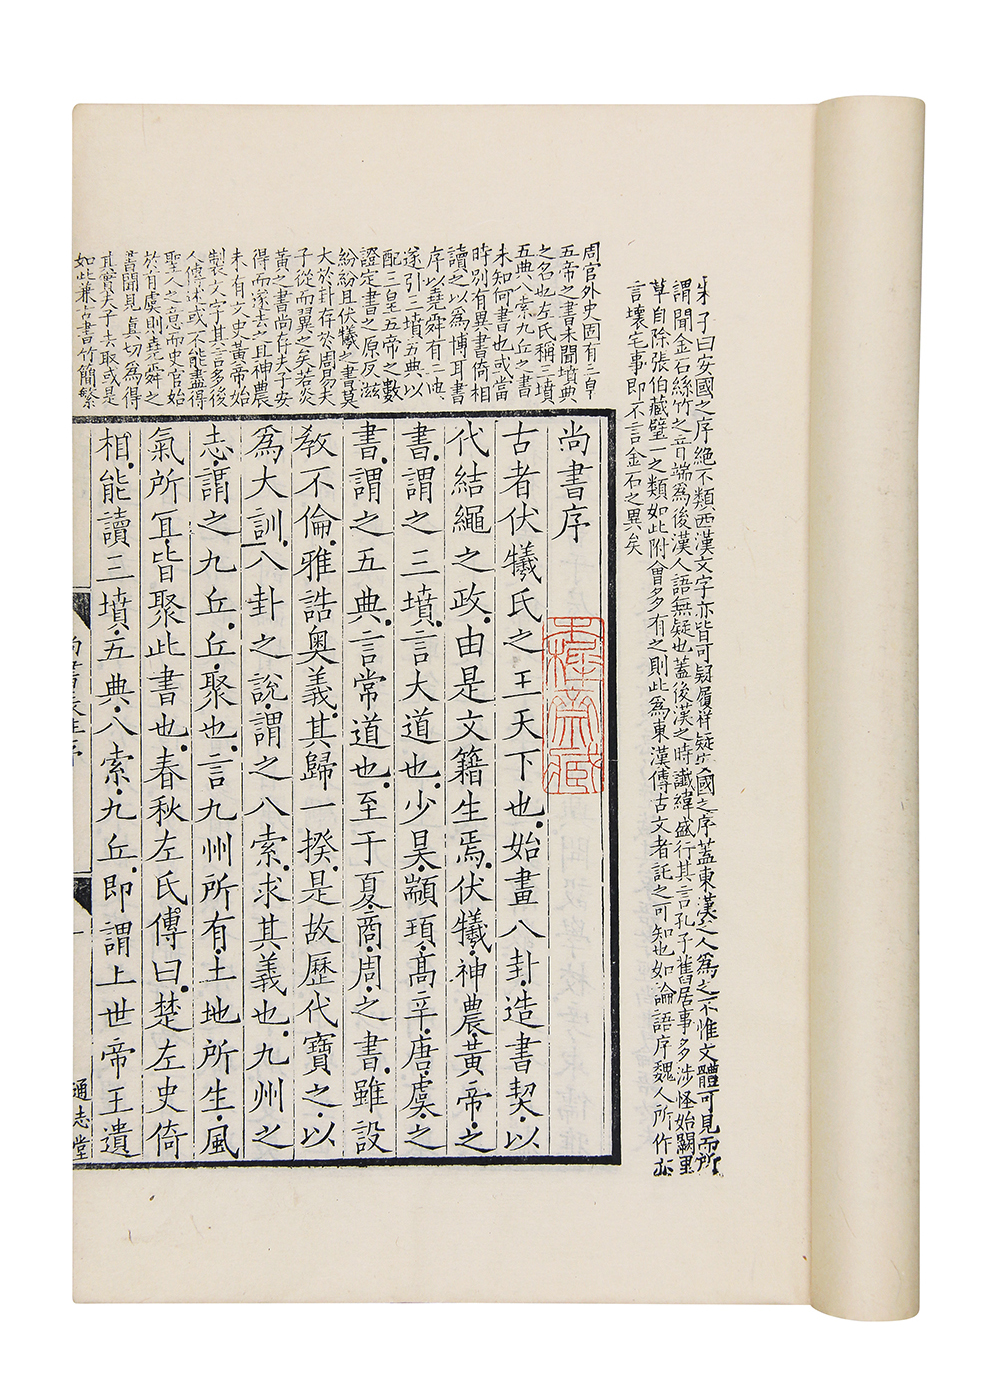 朱子曰安國之序絶不類西漢文字亦皆可疑履祥疑安國之序蓋東漢之人爲之不惟文體可見而所
謂聞金石絲竹之音端爲後漢人語無疑也蓋後漢之時讖緯盛行其言孔子舊居事多涉怪始闕里
草自除張伯藏璧一之類如此附會多有之則此爲東漢傳古文者託之可知也如論語序魏人所作亦
言壞宅事即不言金石之異矣
周官外史固有三皇
五帝之書未聞墳典
之名也左氏稱三墳
五典八索九丘之書
未知何書也或當
時別有異書倚相
讀之以爲博耳書
序以堯舜有二典
遂引三墳五典以
配三皇五帝之數
證定書之原反滋
紛紛且伏犧之書莫
大於卦存於周易夫
子從而翼之矣若炎
黃之書尚存夫子安
得而遂去之且神農
未有文史黃帝始
製文字其言多後
人傳述或不能盡得
聖人之意而史官始
於有虞則堯舜之
書聞見真切爲得
其實夫子去取或是
如此兼古書竹簡繁
尚書序
古者伏犧氏之王天下也始畫八卦造書契以
代結繩之政由是文籍生焉伏犧神農黃帝之
書謂之三墳言大道也少昊顓頊高辛唐虞之
書謂之五典言常道也至于夏商周之書雖設
敎不倫雅誥奥義其歸一揆是故歷代寶之以
爲大訓八卦之說謂之八索求其義也九州之
志謂之九丘丘聚也言九州所有土地所生風
氣所宜皆聚此書也春秋左氏傳曰楚左史倚
相能讀三墳五典八索九丘即謂上世帝王遺
通志堂